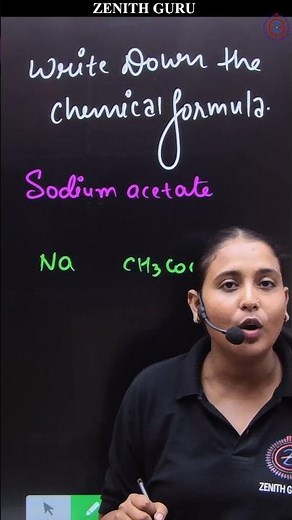 ZENITH GURU
Write Down the
chemical formula.
Sodium acetate
Na CH3COO
ZENITH G